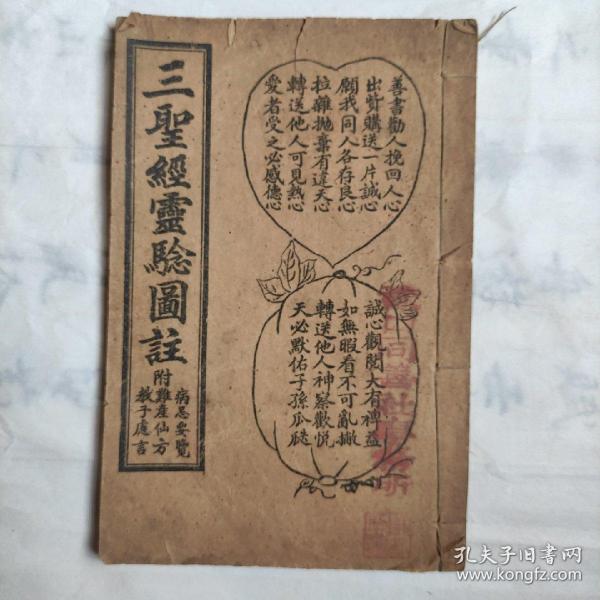 三聖經靈驗圖註
附
病忌要覽
難產仙方
教子處言
善書勸人挽回人心
出貲購送一片誠心
願我同人各存良心
拉雜拋棄有違天心
轉送他人可見熱心
愛者受之必感德心
誠心觀閱大有裨益
如無暇看不可亂撇
轉送他人神察歡悅
天必默佑子孫瓜瓞
同善社
孔夫子旧书网
www.kongfz.com